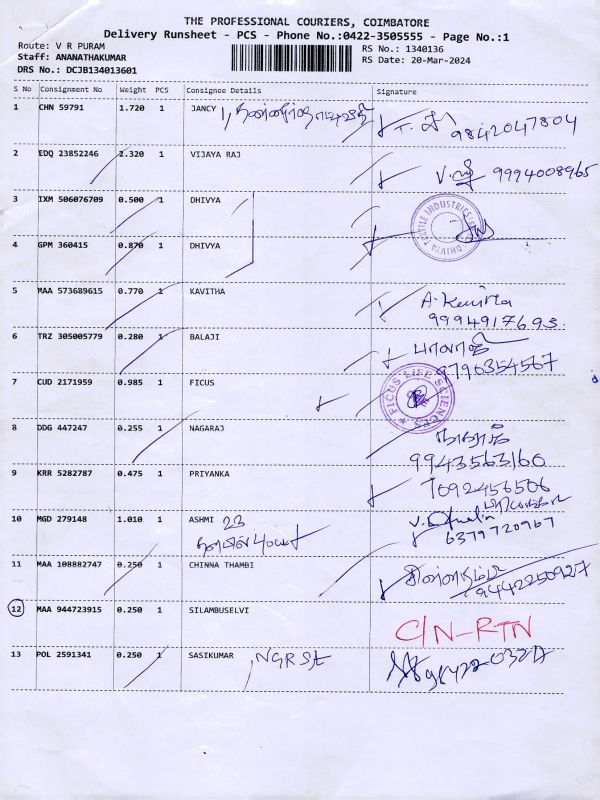 THE PROFESSIONAL COURIERS, COIMBATORE
Delivery Runsheet - PCS - Phone No.:0422-3505555 - Page No.:1
Route: V R PURAM
RS No.: 1340136
Staff: ANANATHAKUMAR
RS Date: 20-Mar-2024
DRS No.: DCJB134013601
S No Consignment No Weight PCS Consignee Details Signature
1 CHN 59791 1.720 1 JANCY
9842047804
2 EDQ 23852246 1.320 1 VIJAYA RAJ 9994008965
3 IXM 506076709 0.500 1 DHIVYA
DHIVYA TEXTILE INDUSTRIES
4 GPM 360415 0.870 1 DHIVYA
5 MAA 573689615 0.770 1 KAVITHA A. Kavitha
9994917693
6 TRZ 305005779 0.280 1 BALAJI பாலாஜி
9790354567
7 CUD 2171959 0.985 1 FICUS
FICUS LIFE SCIENCES
8 DDG 447247 0.255 1 NAGARAJ நாகராஜ்
9943563160
9 KRR 5282787 0.475 1 PRIYANKA 7092456506
பிரியங்கா
10 MGD 279148 1.010 1 ASHMI 23
6379720967
11 MAA 108882747 0.250 1 CHINNA THAMBI சின்னதம்பி
9442250927
12 MAA 944723915 0.250 1 SILAMBUSELVI
C/N-RTN
13 POL 2591341 0.250 1 SASIKUMAR , NGR St